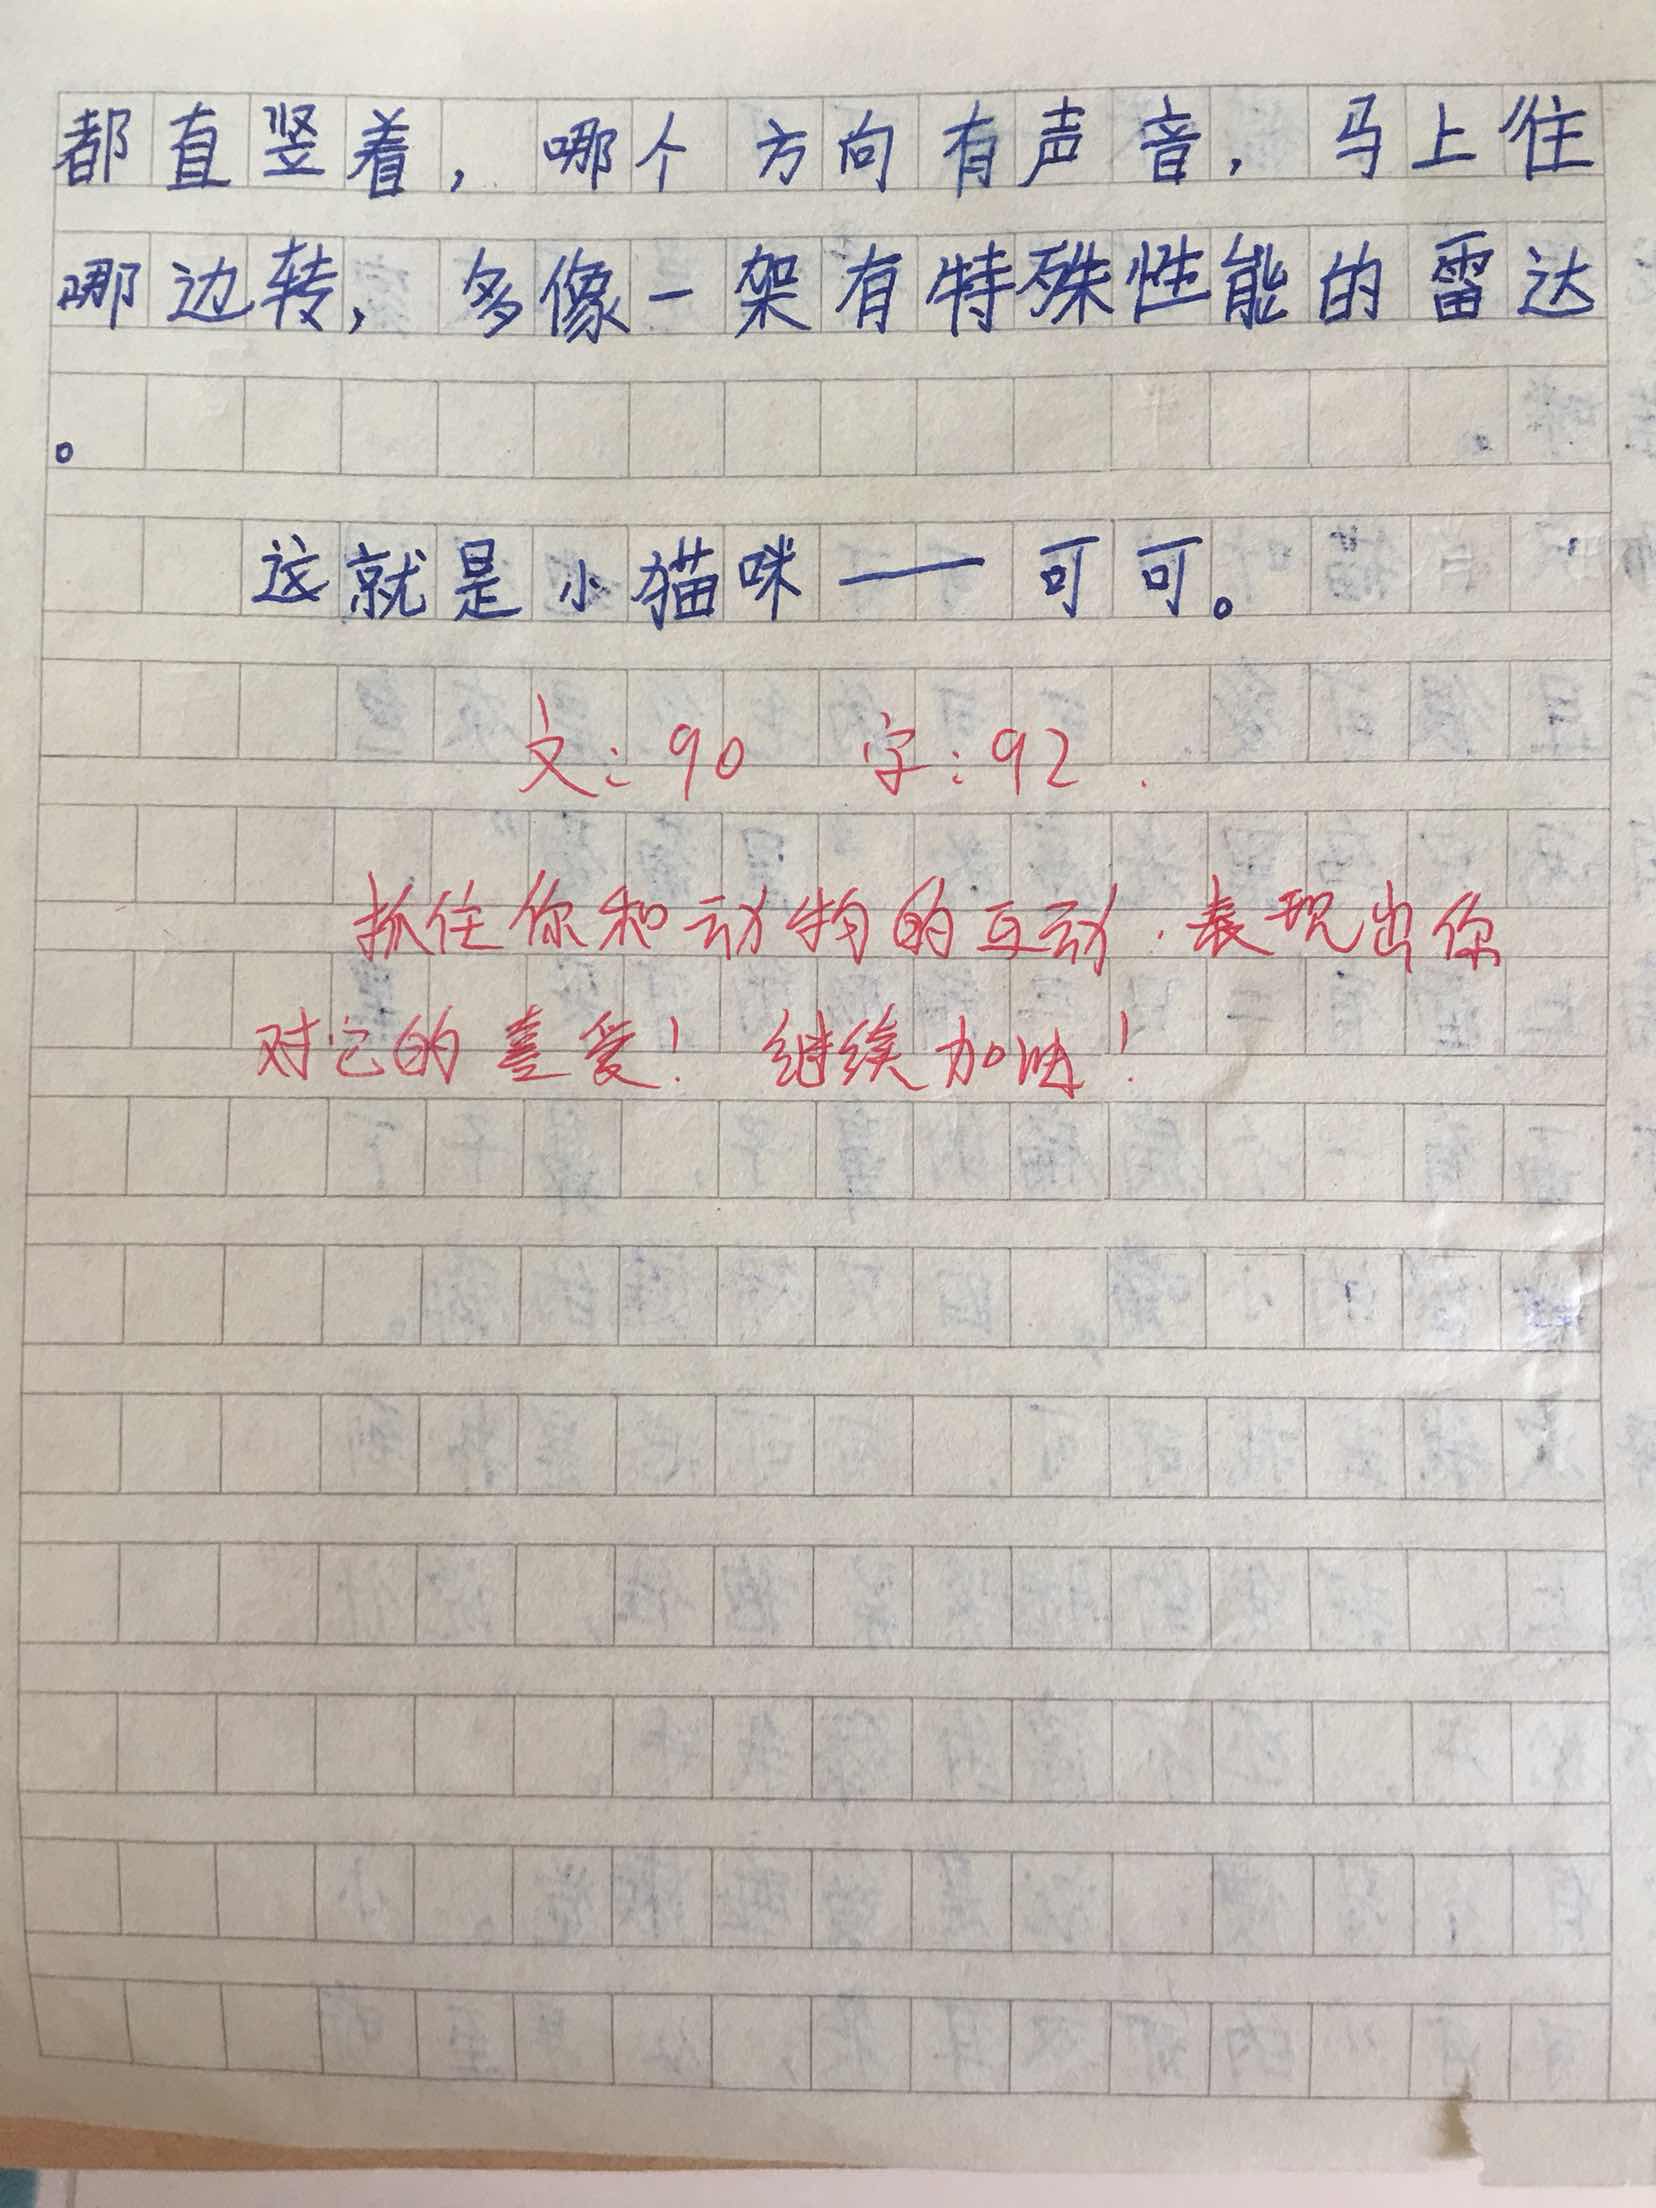 都直竖着，哪个方向有声音，马上往
哪边转，多像一架有特殊性能的雷达
。
这就是小猫咪——可可。
文：90 字：92.
抓住你和动物的互动.表现出你
对它的喜爱！继续加油！